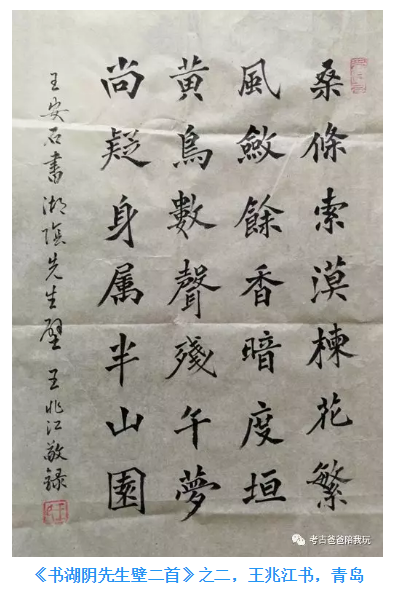 桑條索漠楝花繁
風斂餘香暗度垣
黃鳥數聲殘午夢
尚疑身属半山園
王安石書湖陰先生壁 王兆江敬録
考古爸爸陪我玩
《书湖阴先生壁二首》之二，王兆江书，青岛